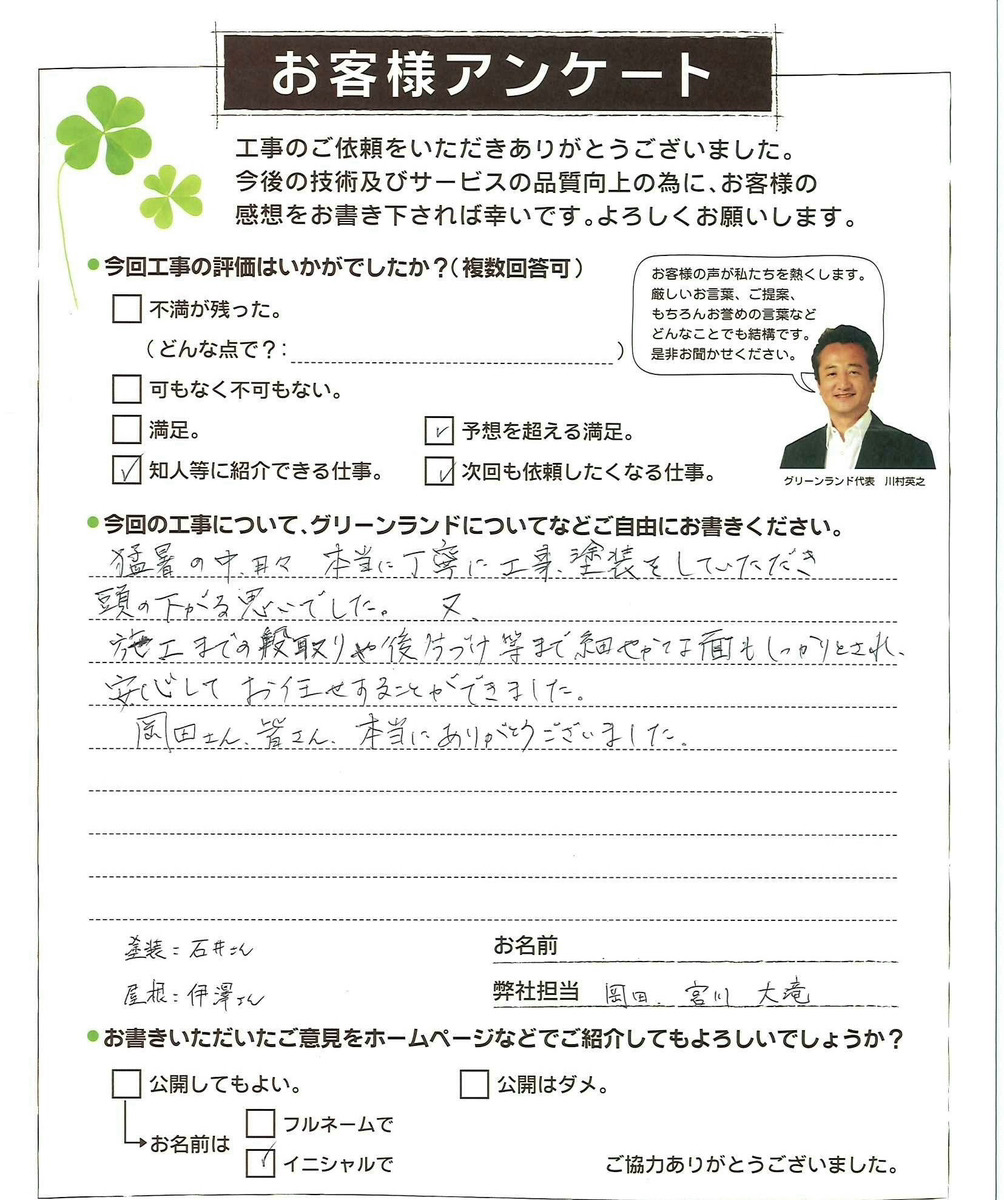 お客様アンケート
工事のご依頼をいただきありがとうございました。
今後の技術及びサービスの品質向上の為に、お客様の
感想をお書き下されば幸いです。よろしくお願いします。
●今回工事の評価はいかがでしたか？（複数回答可）
お客様の声が私たちを熱くします。
厳しいお言葉、ご提案、
もちろんお誉めの言葉など
どんなことでも結構です。
是非お聞かせください。
グリーンランド代表　川村英之
□ 不満が残った。
（どんな点で？：　　　　）
□ 可もなく不可もない。
□ 満足。
☑ 予想を超える満足。
☑ 知人等に紹介できる仕事。
☑ 次回も依頼したくなる仕事。
●今回の工事について、グリーンランドについてなどご自由にお書きください。
猛暑の中、日々 本当に丁寧に工事、塗装をしていただき
頭の下がる思いでした。 又、
施工までの段取りや後片づけ等まで細やかな面もしっかりとされ、
安心して お任せすることができました。
岡田さん、皆さん、本当にありがとうございました。
塗装：石井さん
屋根：伊澤さん
お名前
弊社担当 岡田、宮川 大滝
●お書きいただいたご意見をホームページなどでご紹介してもよろしいでしょうか？
□ 公開してもよい。
□ 公開はダメ。
お名前は
□ フルネームで
☑ イニシャルで
ご協力ありがとうございました。